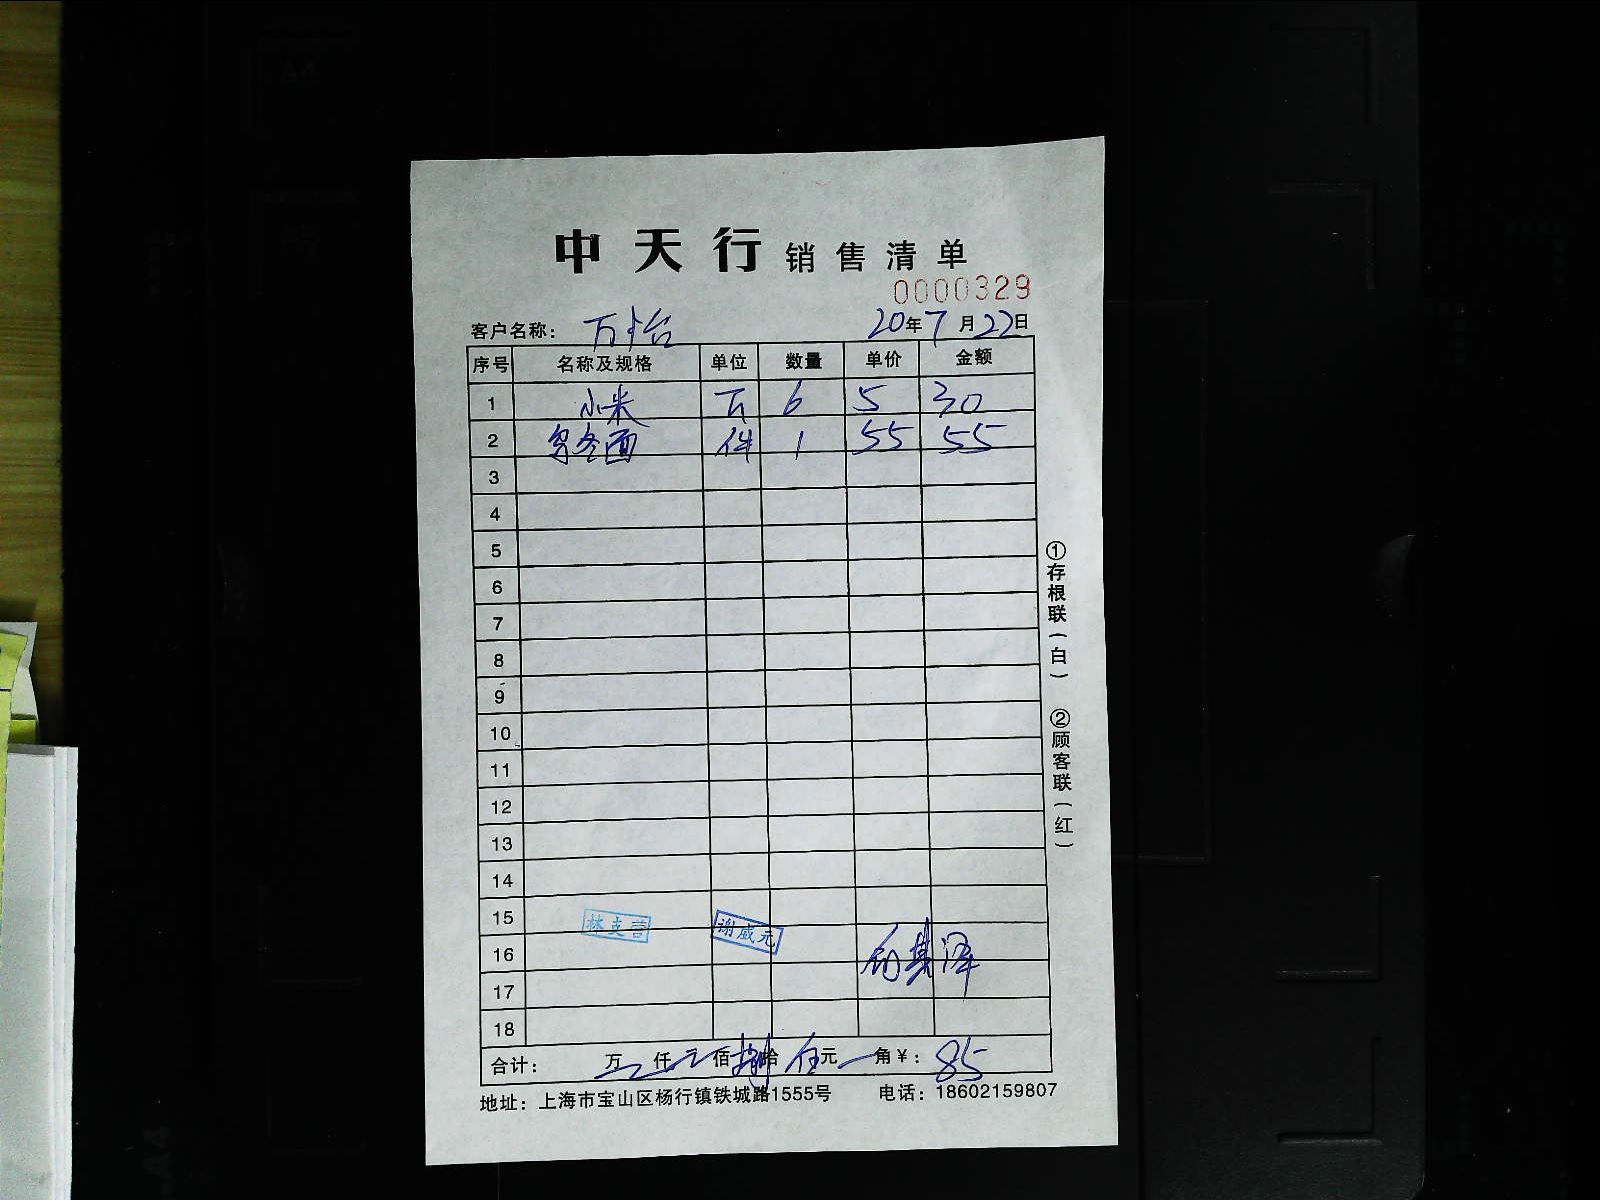 中天行销售清单
0000329
客户名称： 20年7月22日
序号 名称及规格 单位 数量 单价 金额
1 小米 斤 6 5 30
2 面 件 1 55 55
3
4
5
6
7
8
9
10
11
12
13
14
15
16
17
18
林支营
谢盛元
合计： 万 仟 佰 捌拾伍元 角¥：85
地址：上海市宝山区杨行镇铁城路1555号 电话：18602159807
①存根联（白）
②顾客联（红）